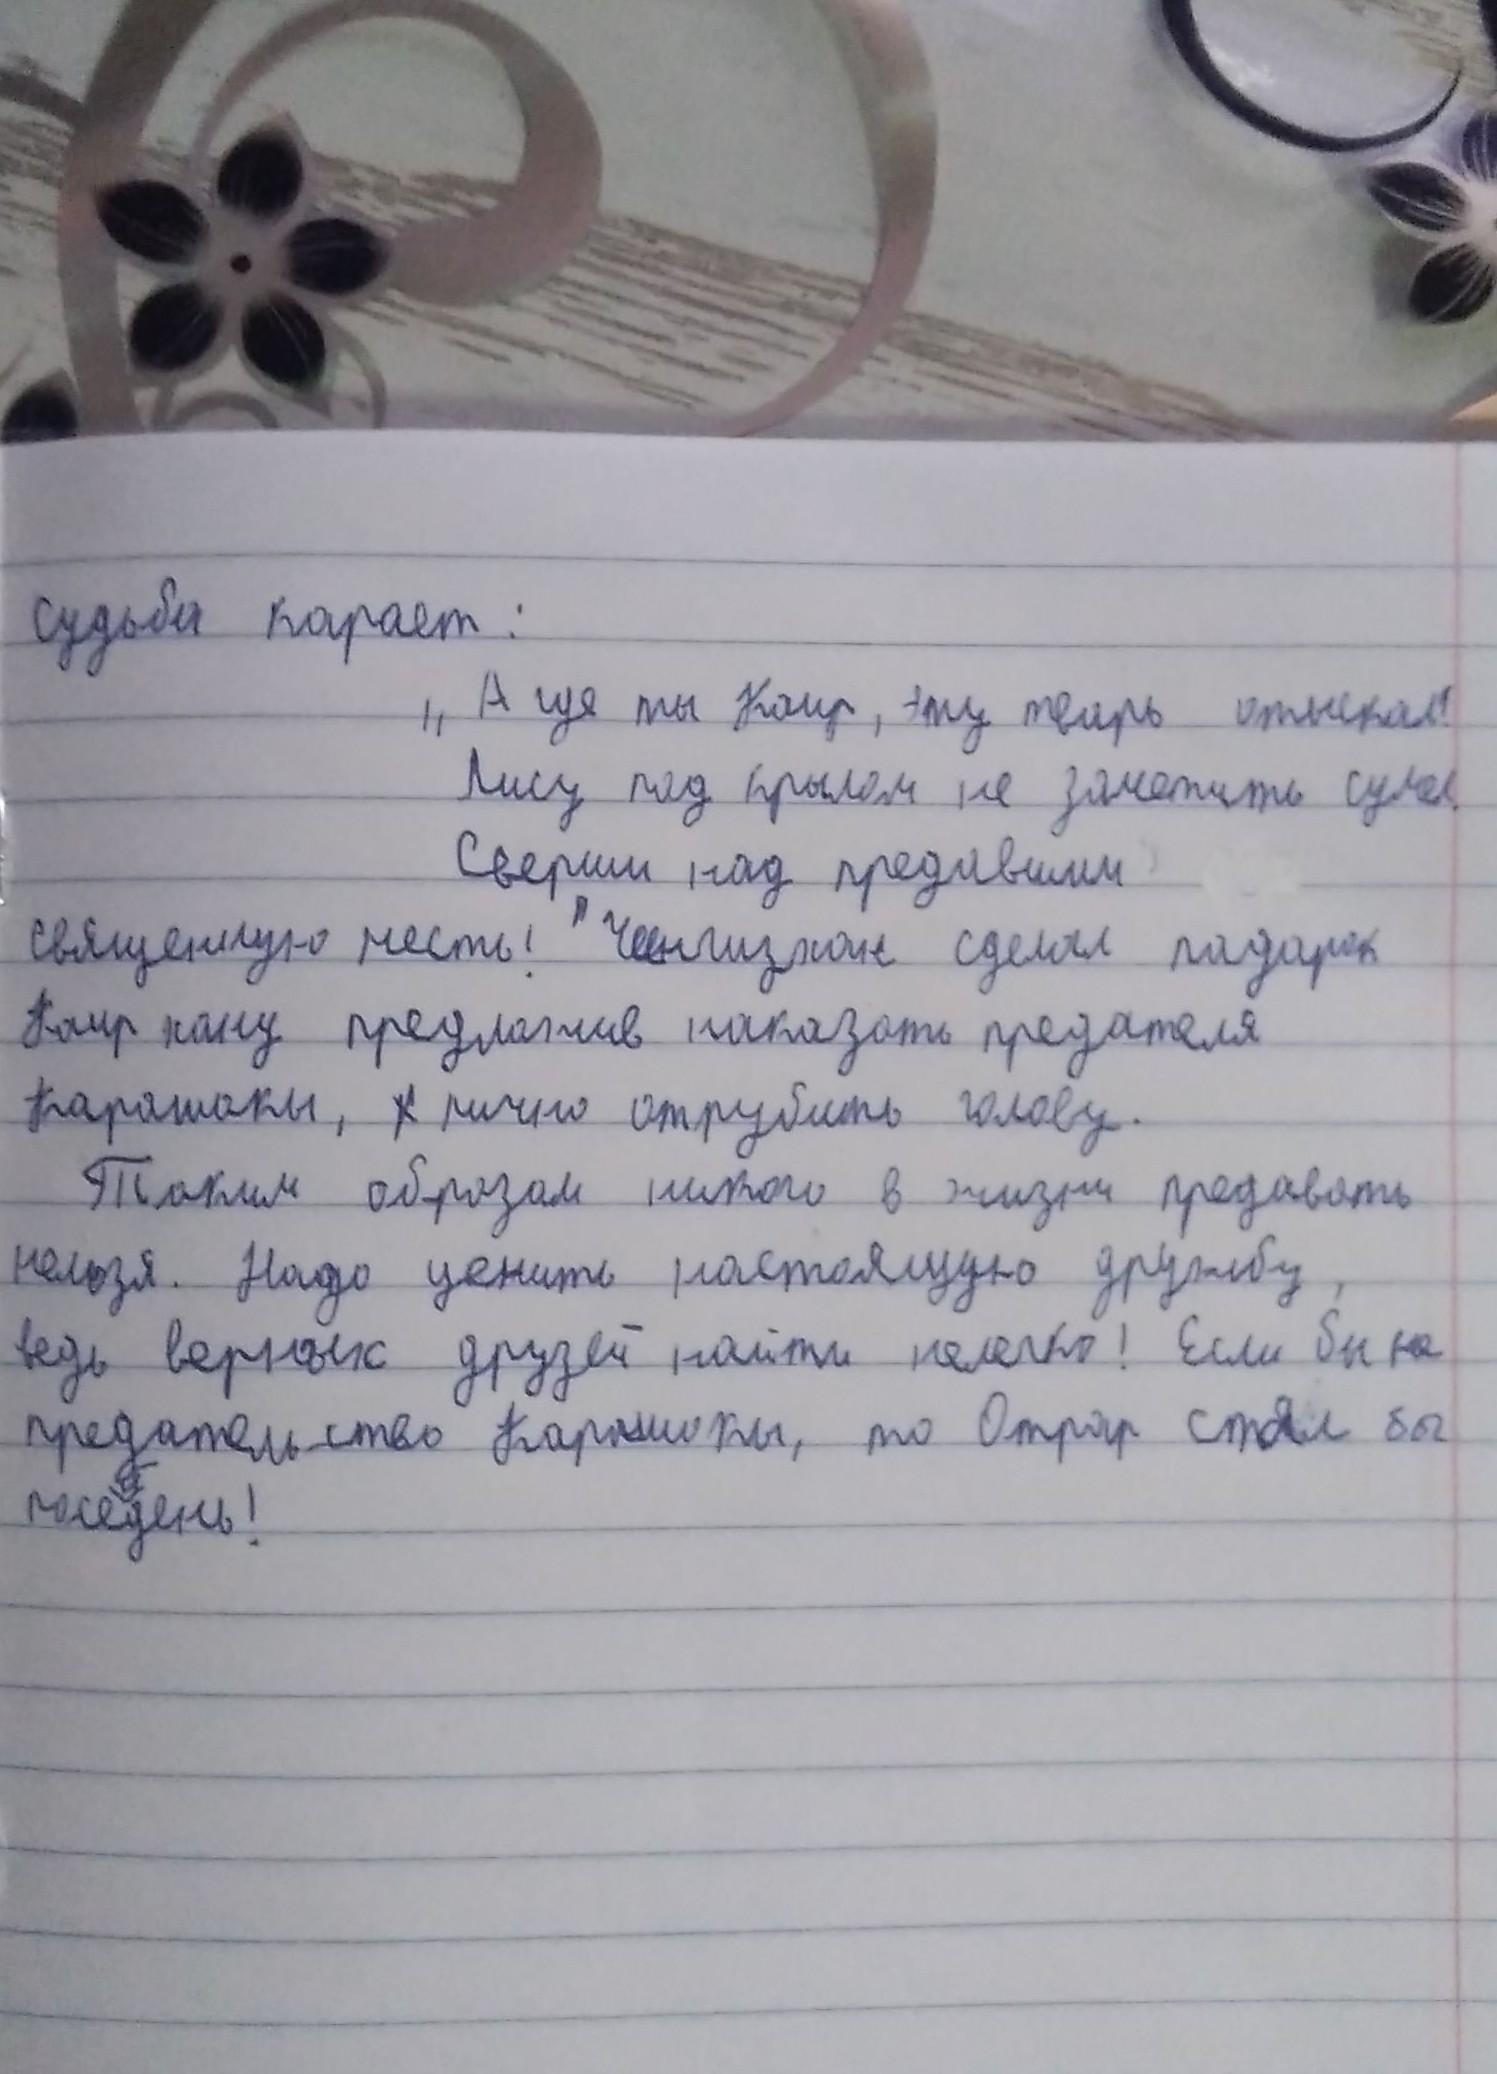 судьба карает:
„А где ты Каир, эту тварь отыскал!
Лису под крылом не заметить сумел.
Сверши над предавшим
священную месть!" Чингизхан сделал подарок
Каир хану предложив наказать предателя
Карашокы, лично отрубить голову.
Таким образом никого в жизни предавать
нельзя. Надо ценить настоящую дружбу,
ведь верных друзей найти нелегко! Если бы не
предательство Карашокы, то Отрар стоял бы
посей день!